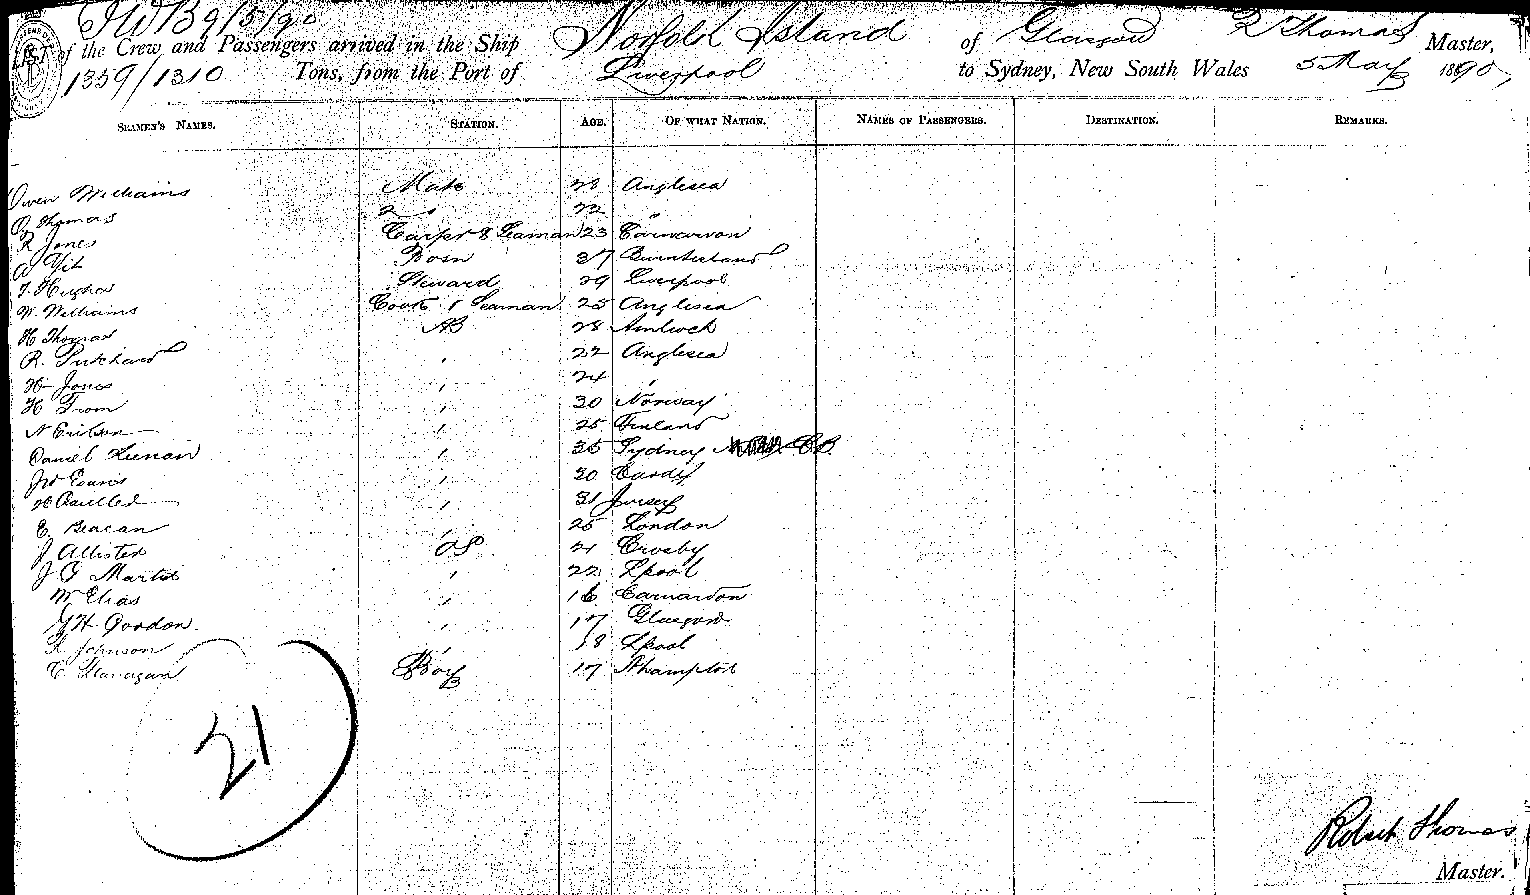 JWB 9/5/90
of the Crew and Passengers arrived in the Ship Norfolk Island of Glasgow R Thomas Master,
1359/1310 Tons, from the Port of Liverpool to Sydney, New South Wales 5 May 1890,
SEAMEN'S NAMES. STATION. AGE. OF WHAT NATION. NAMES OF PASSENGERS. DESTINATION. REMARKS.
Owen Williams Mate Anglesea
Thomas 2 " 22 "
R Jones Carpr & Seaman 23 Carnarvon
A Bosn 37
T. Hughes Steward 29 Liverpool
W. Williams Cook & Seaman 25 Anglesea
H Thomas AB 28 Amlwch
R. Pritchard " 22 Anglesea
H Jones " 24 "
H From " 30 Norway
N Erikson " 25 Finland
Daniel " 35 Sydney C.B.
JW Evans " 30 Cardiff
" 31 Jersey
E. Beacan " 25 London
J Allister OS 21 Crosby
J G Martin " 22 Lpool
W Elias " 16 Carnarvon
G H Gordon " 17 Glasgow
L Johnson " 18 Lpool
C Flanagan Boy 17 Nhampton
21
Robert Thomas
Master.